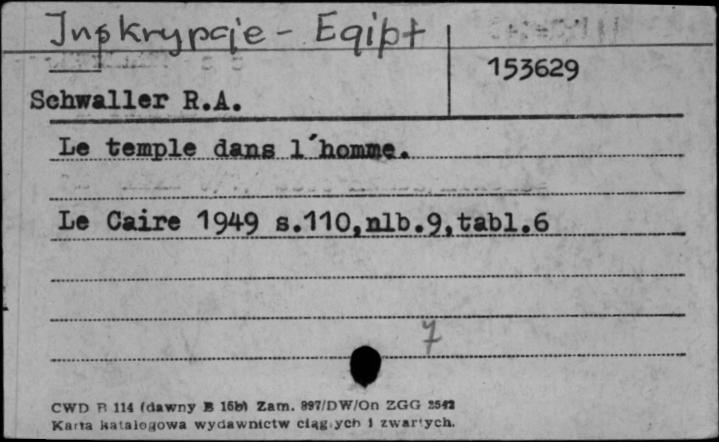 Inskrypcje - Egipt
153629
Schwaller R.A.
Le temple dans l'homme.
Le Caire 1949 s.110,nlb.9,tabl.6
7
CWD B 114 (dawny B 15b) Zam. 897/DW/On ZGG 2542
Karta katalogowa wydawnictw ciągłych i zwartych.